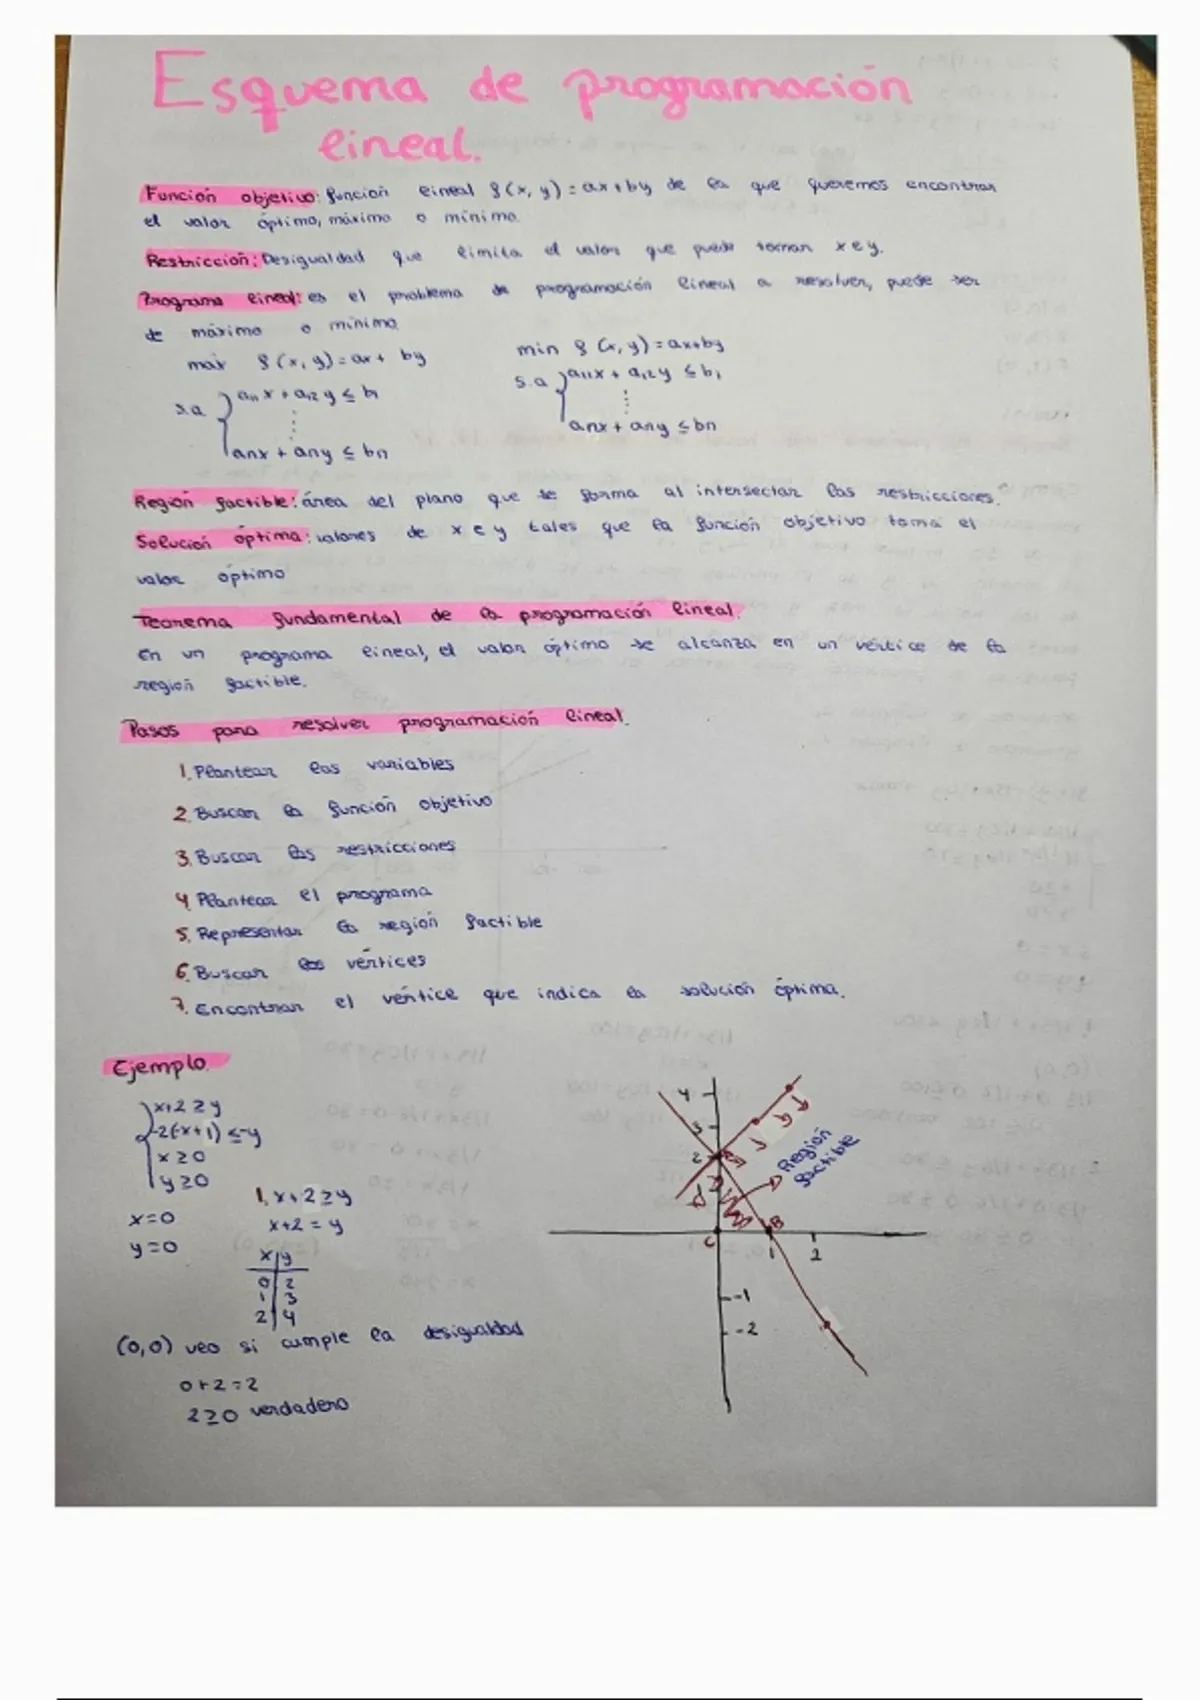 Esquema de programación
lineal.
Función objetivo: función lineal f(x, y) = ax + by de la que queremos encontrar
el valor óptimo, máximo o mínimo.
Restricción: Desigualdad que limita el valor que puede tomar x e y.
Programa lineal: es el problema de programación lineal a resolver, puede ser
de máximo o mínimo.
max f(x, y) = ax + by
min f(x, y) = ax+by
s.a { a11 x + a12 y ≤ b1
⋮
anx + any ≤ bn
s.a { a11x + a12 y ≤ b1
⋮
anx + any ≤ bn
Región factible: área del plano que se forma al intersectar las restricciones.
Solución óptima: valores de x e y tales que la función objetivo toma el
valor óptimo
Teorema fundamental de la programación lineal.
En un programa lineal, el valor óptimo se alcanza en un vértice de la
región factible.
Pasos para resolver programación lineal.
1. Plantear las variables
2. Buscar la función objetivo
3. Buscar las restricciones
4. Plantear el programa
5. Representar la región factible
6. Buscar los vértices
7. Encontrar el vértice que indica la solución óptima.
Ejemplo.
x+2 ≥ y
-2(-x+1) ≤ -y
x ≥ 0
y ≥ 0
x=0
y=0
1. x+2 ≥ y
x+2 = y
x|y
0|2
1|3
2|4
(0,0) veo si cumple la desigualdad
0+2=2
2≥0 verdadero
4
3
2
Región
factible
C
B
1
2
-1
-2